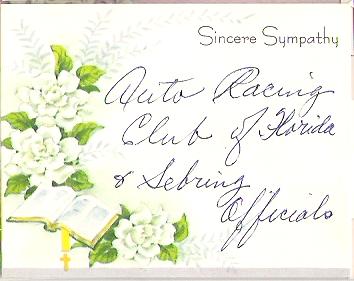 Sincere Sympathy
Auto Racing
Club of Florida
& Sebring
Officials